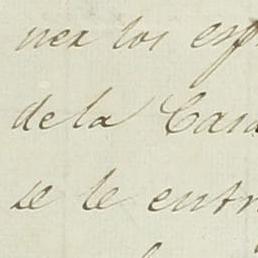 ner los esp
de la Cara
se le entr